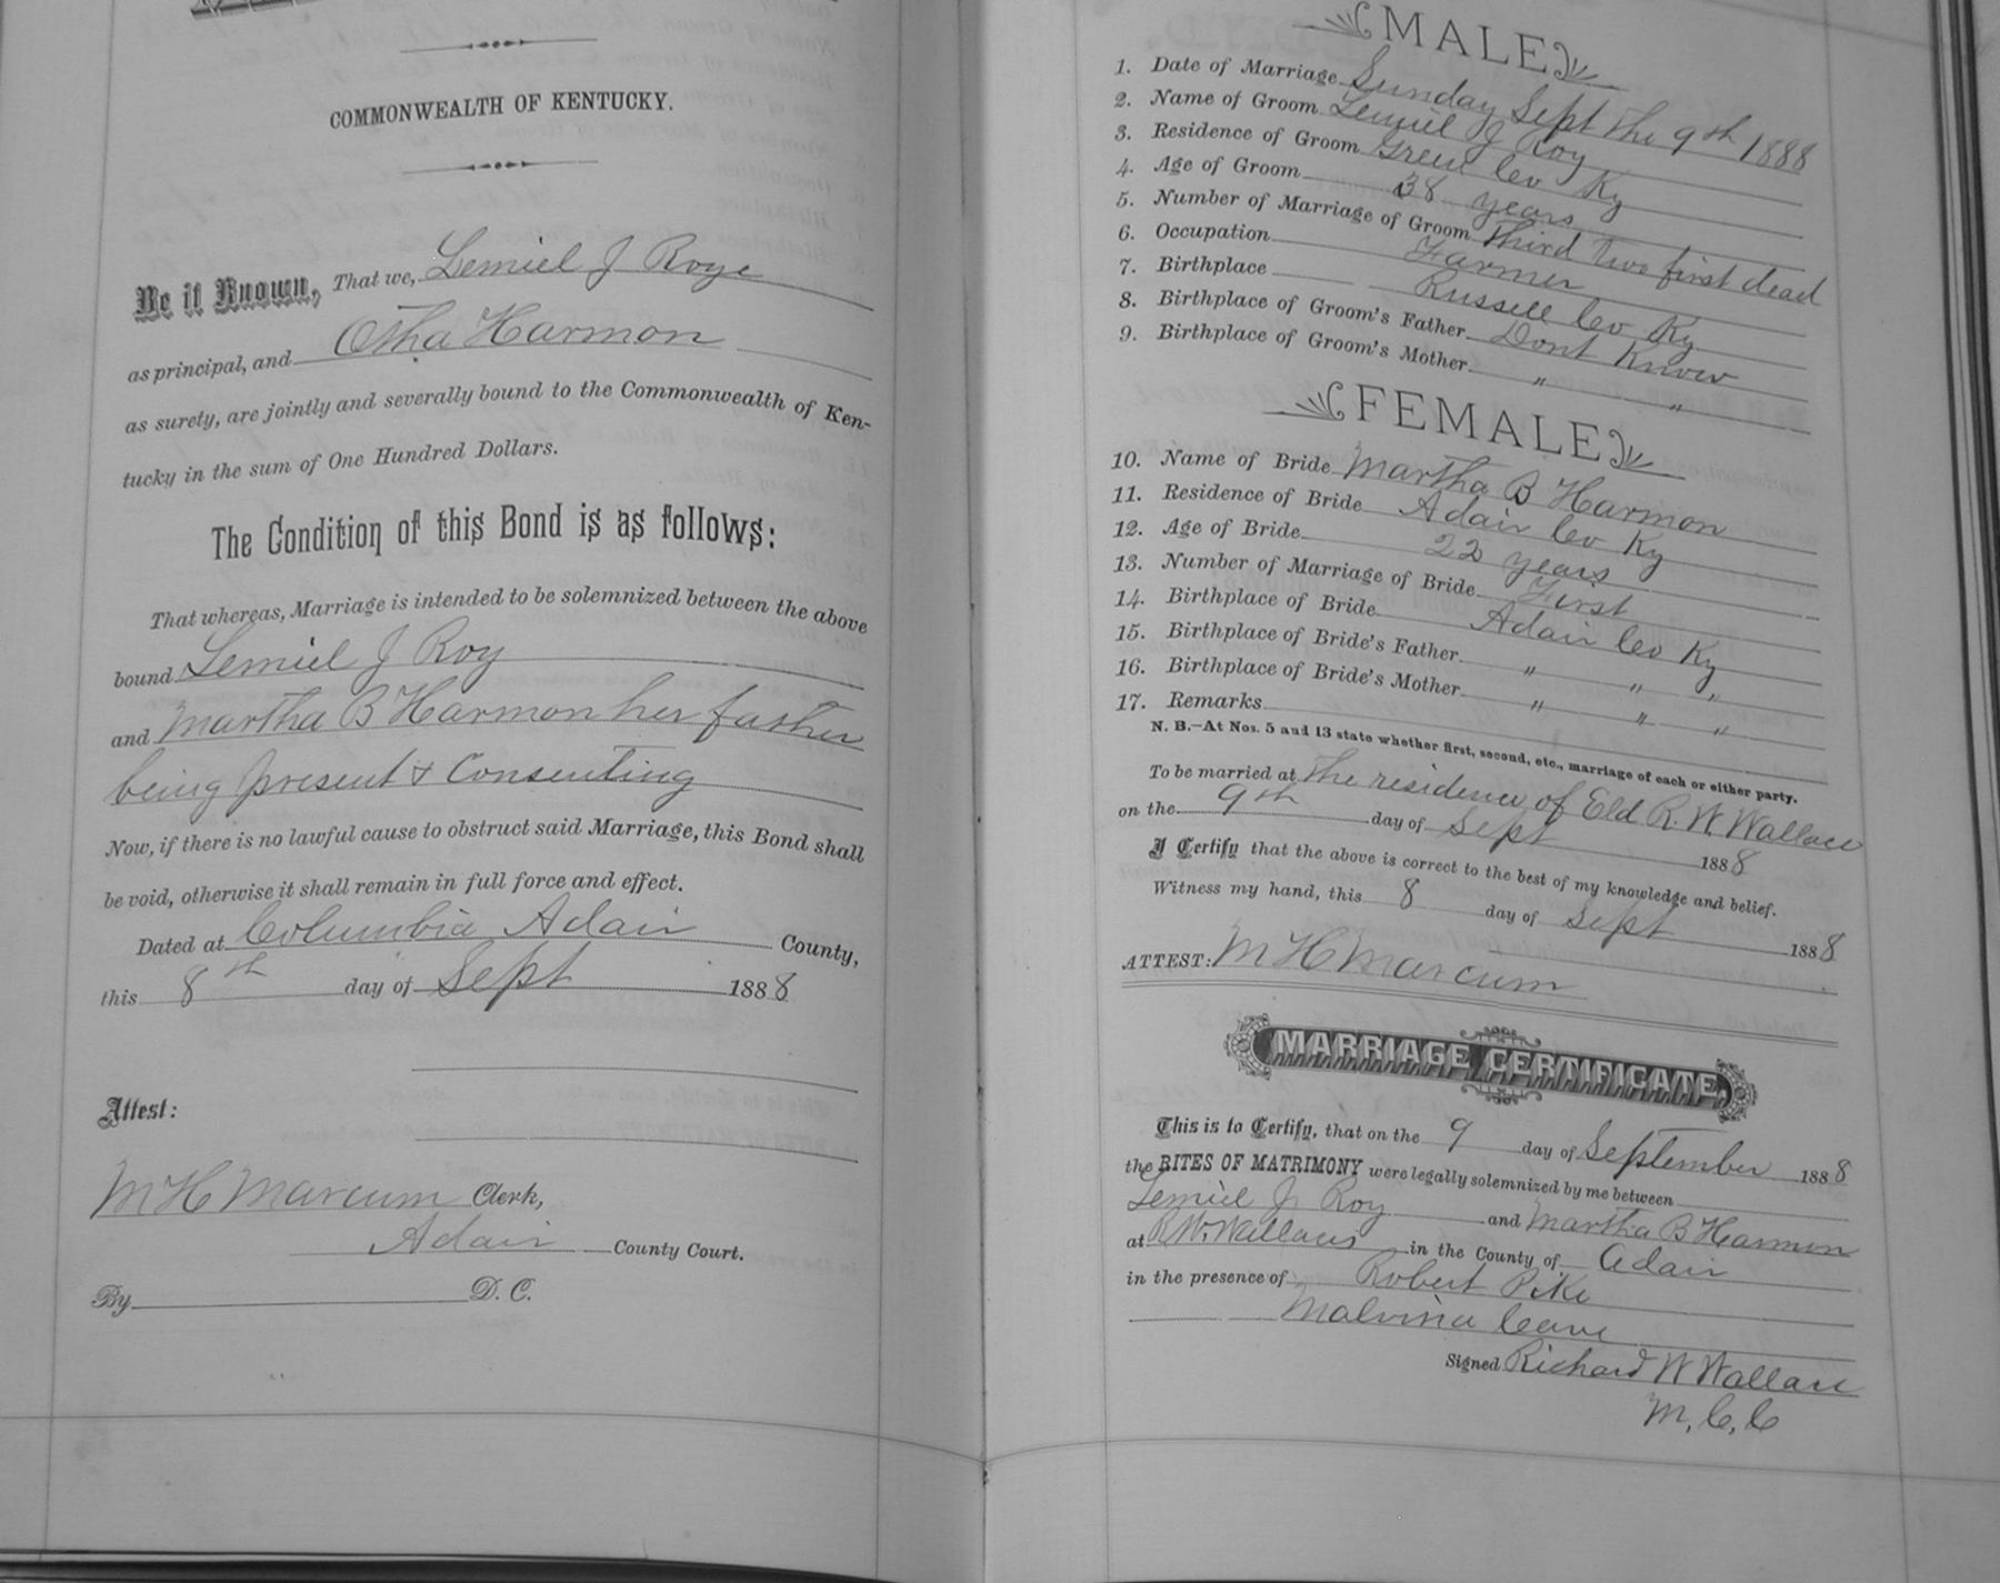 COMMONWEALTH OF KENTUCKY.
Be it Known, That we, Lemiel J Roye
as principal, and Otha Harmon
as surety, are jointly and severally bound to the Commonwealth of Ken-
tucky in the sum of One Hundred Dollars.
The Condition of this Bond is as follows:
That whereas, Marriage is intended to be solemnized between the above
bound Lemiel J Roy
and Martha B Harmon her father
being present & Consenting
Now, if there is no lawful cause to obstruct said Marriage, this Bond shall
be void, otherwise it shall remain in full force and effect.
Dated at Columbia Adair County,
this 8th day of Sept 1888
Attest:
M H Marcum Clerk,
Adair County Court.
By D. C.
MALE
1. Date of Marriage Sunday Sept the 9th 1888
2. Name of Groom Lemiel J Roy
3. Residence of Groom Green Co Ky
4. Age of Groom 38 years
5. Number of Marriage of Groom Third Two first dead
6. Occupation Farmer
7. Birthplace Russell Co Ky
8. Birthplace of Groom's Father Dont Know
9. Birthplace of Groom's Mother " "
FEMALE
10. Name of Bride Martha B Harmon
11. Residence of Bride Adair Co Ky
12. Age of Bride 22 years
13. Number of Marriage of Bride First
14. Birthplace of Bride Adair Co Ky
15. Birthplace of Bride's Father " " "
16. Birthplace of Bride's Mother " " "
17. Remarks
N. B.—At Nos. 5 and 13 state whether first, second, etc., marriage of each or either party.
To be married at the residence of Eld R. W Wallace
on the 9th day of Sept 1888
I Certify that the above is correct to the best of my knowledge and belief.
Witness my hand, this 8 day of Sept 1888
ATTEST: M H Marcum
MARRIAGE CERTIFICATE.
This is to Certify, that on the 9 day of September 1888
the RITES OF MATRIMONY were legally solemnized by me between
Lemiel J. Roy and Martha B Harmon
at R. W. Wallaces in the County of Adair
in the presence of Robert Pike
Malvina Cave
Signed Richard W Wallace
M, C, C